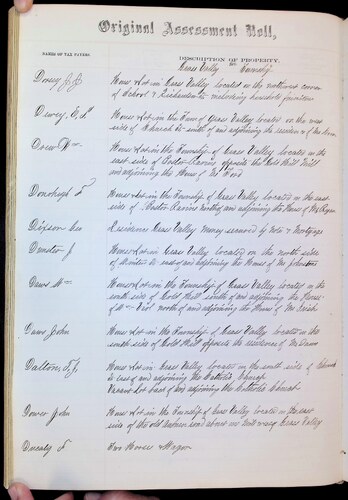 Original Assessment Roll,
NAMES OF TAX PAYERS
DESCRIPTION OF PROPERTY.
Grass Valley Township
Dorsey J. J. House & Lot in Grass Valley located on the northwest corner
of School & Richardson Sts including household furniture
Dewey, E, House & Lot in the Town of Grass Valley located on the west
side of Church St south of and adjoining the residence of
Drew Wm House & Lot in the Township of Grass Valley located in the
east side of Boston Ravine opposite the Gold Hill Mill
and adjoining the House of Mr Ford
Donohugh T House & Lot in the Township of Grass Valley located in the east
side of Boston Ravine north of and adjoining the House of
Gipson Geo Residence Grass Valley money secured by note & mortgage
J House & Lot in Grass Valley located on the north side
of St east of and adjoining the House of Mr Johnston
Daws Wm House & Lot in the Township of Grass Valley located in the
south side of Gold Hill south of and adjoining the House
of Wm north of and adjoining the House of Mr
Daws John House & Lot in the Township of Grass Valley located in the
south side of Gold Hill opposite the residence of Mr Daws
Dalton, T. J. House & Lot in Grass Valley located in the south side of Church
St east of and adjoining the Catholic Church
Vacant Lot East of and adjoining the Catholic Church
Dower John House & Lot in the Township of Grass Valley located in the east
side of the old Auburn road about one half way Grass Valley
Ducaty T Two Horses & Wagon